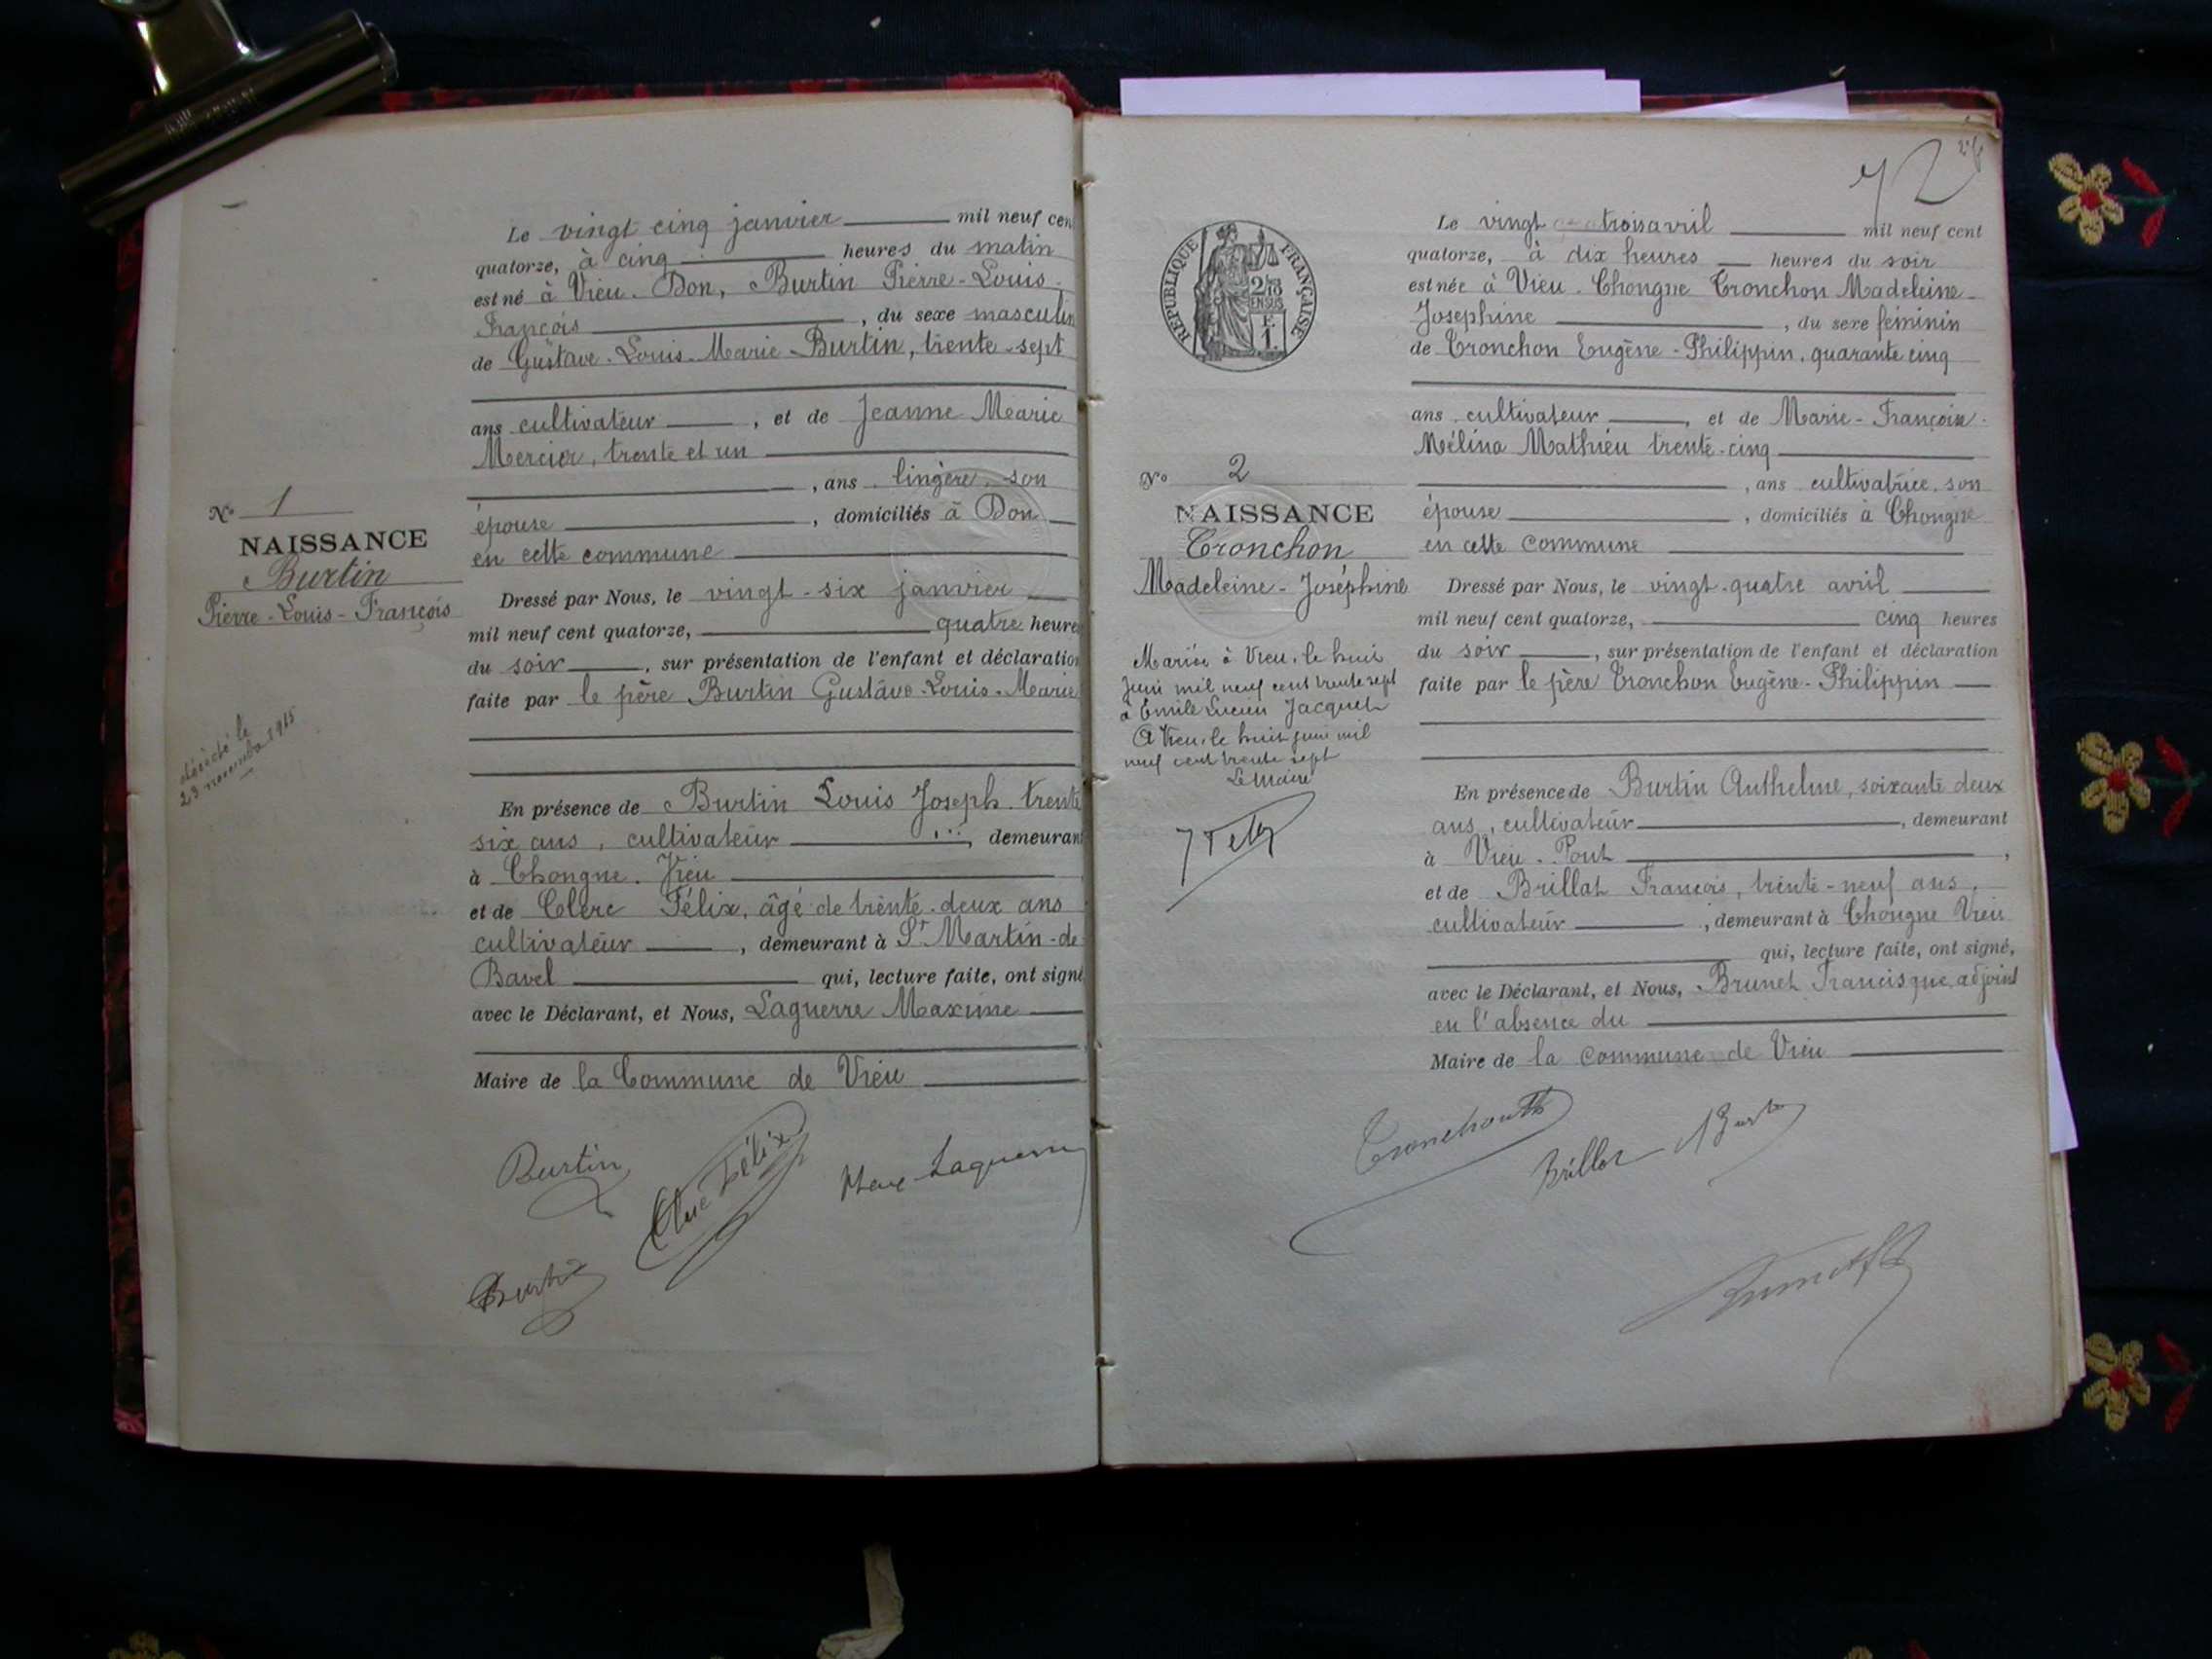 Le vingt cinq janvier mil neuf cen
quatorze, à cinq heures du matin
est né à Vieu. Don, Burtin Pierre-Louis-
François , du sexe masculin
de Gustave-Louis-Marie Burtin, trente-sept
ans cultivateur , et de Jeanne Marie
Mercier, trente et un
, ans lingère, son
épouse , domiciliés à Don
en cette commune
Dressé par Nous, le vingt-six janvier
mil neuf cent quatorze, quatre heures
du soir , sur présentation de l'enfant et déclaration
faite par le père Burtin Gustave-Louis-Marie
En présence de Burtin Louis Joseph trente
six ans, cultivateur , demeurant
à Chongne. Vieu
et de Clerc Félix, âgé de trente-deux ans
cultivateur , demeurant à St Martin-de
Bavel qui, lecture faite, ont signé
avec le Déclarant, et Nous, Laguerre Maxime
Maire de la Commune de Vieu
Burtin
Clerc Félix
Max Laguerre
Burtin
No 1
NAISSANCE
Burtin
Pierre-Louis-François
décédé le
23 novembre 1915
72
RÉPUBLIQUE FRANÇAISE
2/10
EN SUS
F.
1.
Le vingt trois avril mil neuf cent
quatorze, à dix heures heures du soir
est née à Vieu. Chongne Tronchon Madeleine-
Josephine , du sexe féminin
de Tronchon Eugène-Philippin, quarante cinq
ans cultivateur , et de Marie-Françoise-
Mélina Mathieu trente-cinq
, ans cultivatrice, son
épouse , domiciliés à Chongne
en cette commune
Dressé par Nous, le vingt-quatre avril
mil neuf cent quatorze, cinq heures
du soir , sur présentation de l'enfant et déclaration
faite par le père Tronchon Eugène-Philippin
En présence de Burtin Anthelme, soixante deux
ans, cultivateur , demeurant
à Vieu. Pont ,
et de Brillat François, trente-neuf ans,
cultivateur , demeurant à Chongne Vieu
qui, lecture faite, ont signé,
avec le Déclarant, et Nous, Brunet Francisque, adjoint
en l'absence du
Maire de la commune de Vieu
No 2
NAISSANCE
Tronchon
Madeleine-Joséphine
Mariée à Vieu, le huit
juin mil neuf cent trente sept
à Emile Lucien Jacquet
A Vieu, le huit juin mil
neuf cent trente sept
Le Maire
Brillat